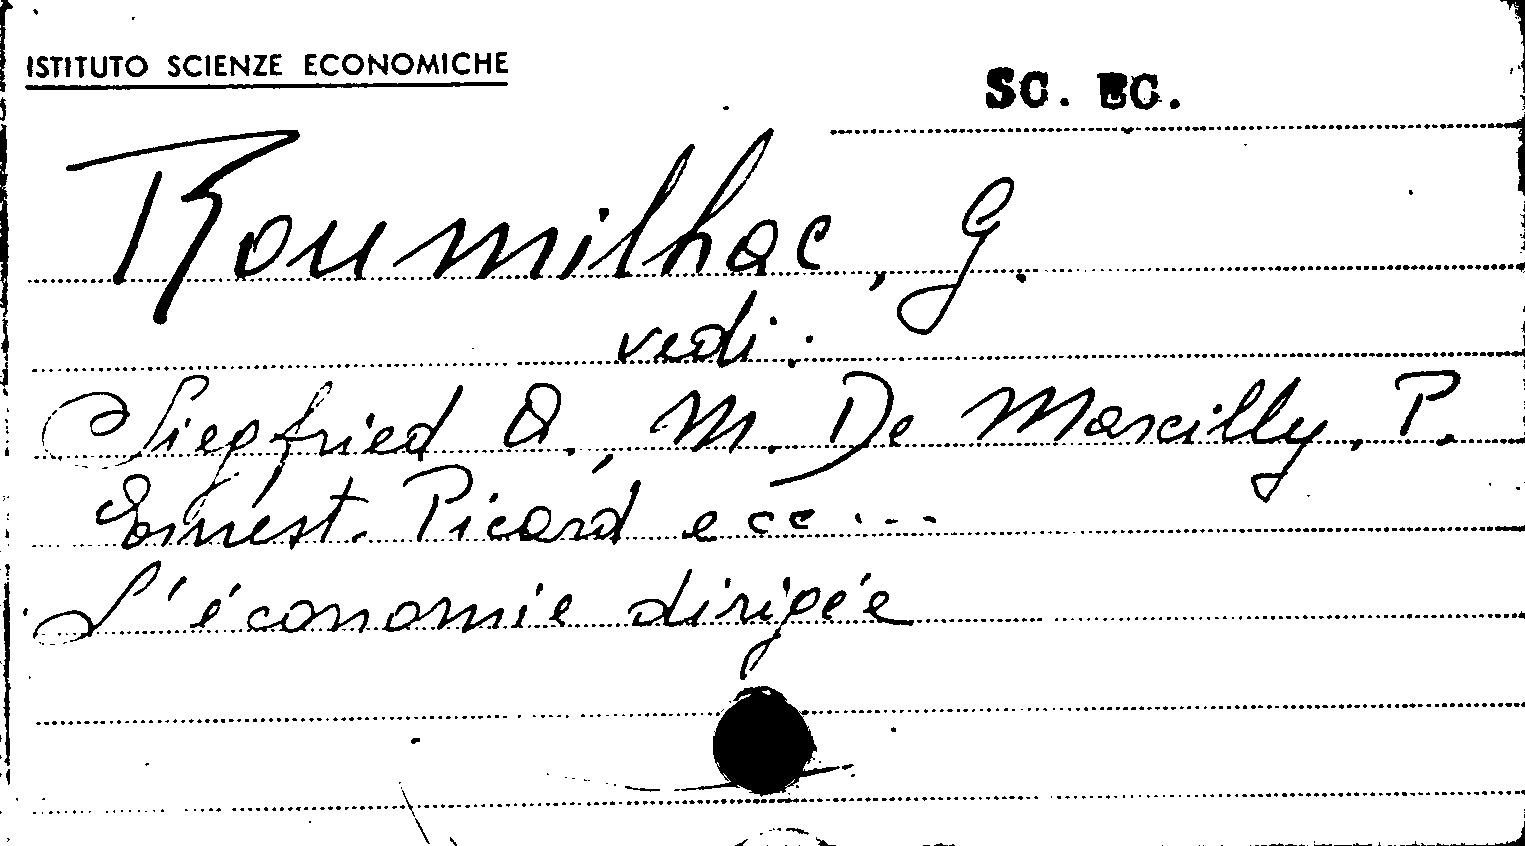 ISTITUTO SCIENZE ECONOMICHE
SC. EC.
Roumilhac, G.
vedi:
Siegfried A., M. De Marcilly, P.
Ernest. Picard ecc...
L'économie dirigée